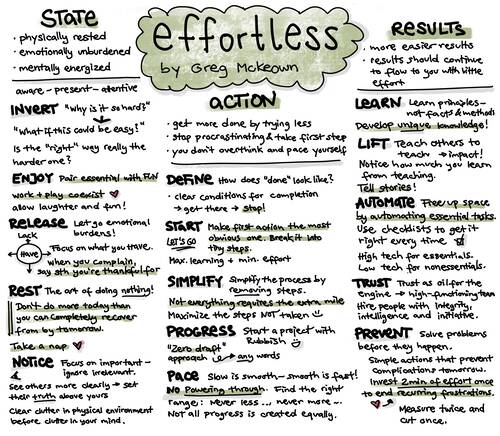 effortless
by Greg McKeown
STATE
· physically rested
· emotionally unburdened
· mentally energized
aware - present - attentive
INVERT "Why is it so hard?"
"What if this could be easy?"
Is the "right" way really the
harder one?
ENJOY Pair essential with FUN
work + play coexist
allow laughter and fun!
RELEASE Let go emotional
burdens!
Lack
Have
Focus on what you have.
when you complain,
say sth you're thankful for
REST The art of doing nothing!
Don't do more today than
you can completely recover
from by tomorrow.
Take a nap
NOTICE Focus on important -
ignore irrelevant.
See others more clearly → set
their truth above yours
Clear clutter in physical environment
before clutter in your mind.
ACTION
· get more done by trying less
· stop procrastinating & take first step
· you don't overthink and pace yourself
DEFINE How does "done" look like?
· clear conditions for completion
→ get there → stop!
START Make first action the most
obvious one. Break it into
tiny steps.
LET'S GO
Max. learning + min. effort
SIMPLIFY Simplify the process by
removing steps.
Not everything requires the extra mile
Maximize the steps NOT taken
PROGRESS Start a project with
Rubbish
"Zero draft"
approach → any words
PACE Slow is smooth - smooth is fast!
NO Powering through. Find the right
range: Never less... never more...
Not all progress is created equally.
RESULTS
· more easier results
· results should continue
to flow to you with little
effort
LEARN Learn principles -
not facts & methods
Develop unique knowledge!
LIFT Teach others to
teach → impact!
Notice how much you learn
from teaching.
Tell stories!
AUTOMATE Free up space
by automating essential tasks.
Use checklists to get it
right every time
High tech for essentials.
Low tech for nonessentials.
TRUST Trust as oil for the
engine → high-functioning team
Hire people with integrity,
intelligence and initiative.
PREVENT Solve problems
before they happen.
Simple actions that prevent
complications tomorrow.
Invest 2min of effort once
to end recurring frustrations.
Measure twice and
cut once.